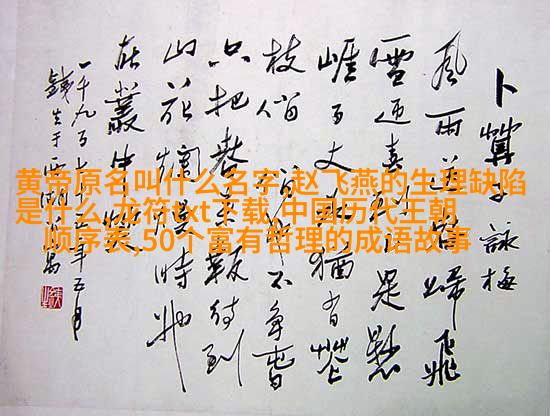 卜算子詠梅
風雨送春歸飛
雪迎春到已是懸
崖百丈冰猶有花
枝俏俏也不爭春
只把春來報待到
山花爛漫時她
在叢中笑
一千九百七十五年五月
黄帝原名叫什么名字,赵飞燕的生理缺陷
是什么,龙符txt下载,中国历代王朝
顺序表,50个富有哲理的成语故事